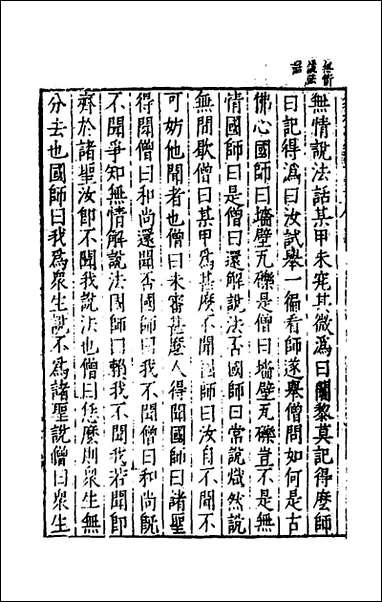 無情說法話某甲未究其微溈曰闍黎莫記得麽師
曰記得溈曰汝試舉一徧看師遂舉僧問如何是古
佛心國師曰墻壁瓦礫是僧曰墻壁瓦礫豈不是無
情國師曰是僧曰還解說法否國師曰常說熾然說
無間歇僧曰某甲爲甚麽不聞國師曰汝自不聞不
可妨他聞者也僧曰未審甚麽人得聞國師曰諸聖
得聞僧曰和尚還聞否國師曰我不聞僧曰和尚旣
不聞爭知無情解說法國師曰賴我不聞我若聞卽
齊於諸聖汝卽不聞我說法也僧曰恁麽則衆生無
分去也國師曰我爲衆生說不爲諸聖說僧曰衆生